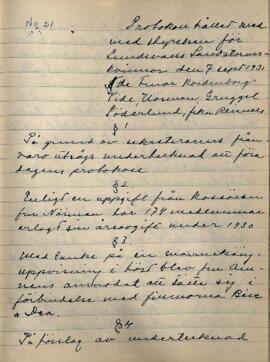 No 21
Protokoll hållet med
med styrelsen för
Sundsvalls Landstorms-
kvinnor den 7 sept 1931
Fde Einar Nordenborg
Tide Norman Gruggel
Söderlund, frkn Rennes
§ 1
På grund av sekreterarens från-
varo utsågs undertecknad att föra
dagens protokoll
§ 2.
Enligt en uppgift från kassören
fru Norman har 174 medlemmar
erlagt sin årsavgift under 1930
§ 3.
Med tanke på en
uppvisning i höst blev fru
annmodat att sätta sig i
förbindelse med firmorna
o Dea.
§ 4
På förslag av undertecknad